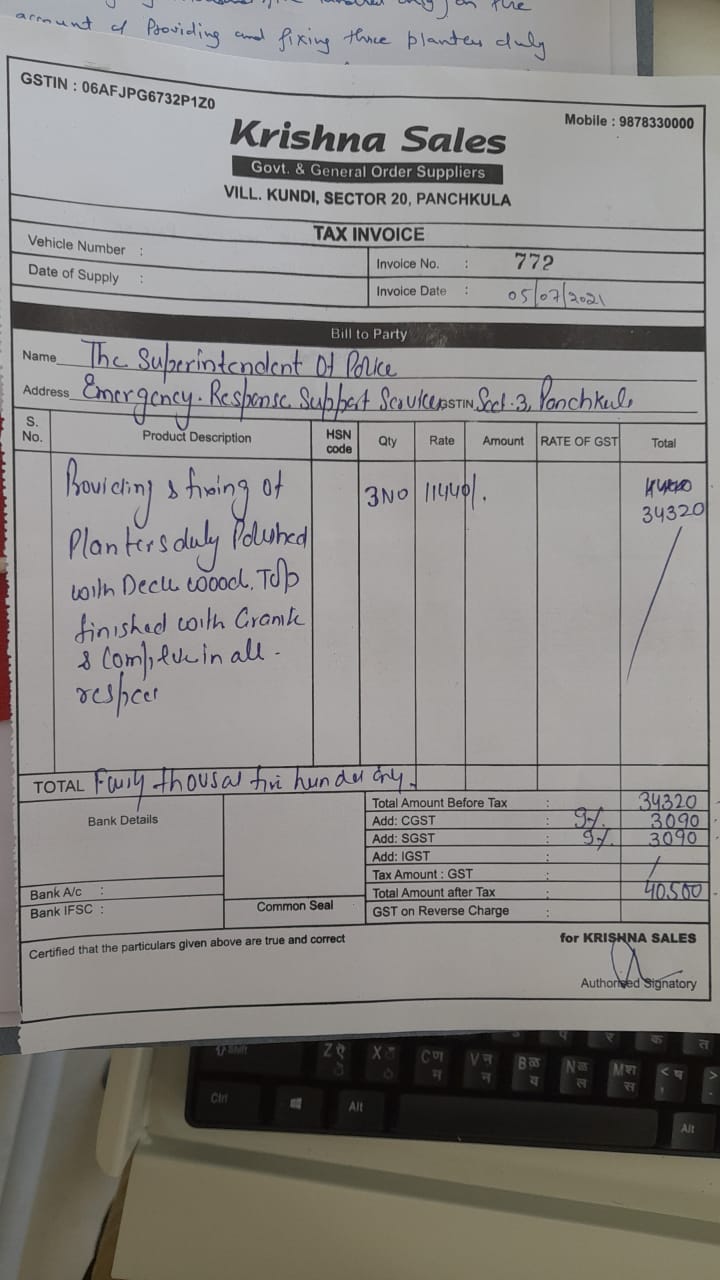 account of Providing and fixing three planters duly
GSTIN : 06AFJPG6732P1Z0
Mobile : 9878330000
Krishna Sales
Govt. & General Order Suppliers
VILL. KUNDI, SECTOR 20, PANCHKULA
TAX INVOICE
Vehicle Number :
Invoice No. : 772
Date of Supply :
Invoice Date : 05/07/2021
Bill to Party
Name The Superintendent Of Police
Address Emergency. Response Support Service GSTIN Sect-3, Panchkula
S. No. Product Description HSN code Qty Rate Amount RATE OF GST Total
Providing & fixing of 3NO 11440/.
34320
Planters duly Polished
with Deck woood. Top
finished with Granite
& Complete in all -
respect
TOTAL Fourty thousand five hundred only.
Bank Details
Total Amount Before Tax : 34320
Add: CGST : 9%. 3090
Add: SGST : 9%. 3090
Add: IGST :
Tax Amount : GST :
Bank A/c :
Total Amount after Tax : 40500
Bank IFSC :
Common Seal
GST on Reverse Charge :
Certified that the particulars given above are true and correct
for KRISHNA SALES
Authorised Signatory
Shift Z X C V B N M <
Ctrl Alt Alt